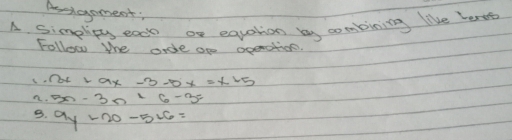 Assignment:
A. Simplify each of equation by combining like terms
Follow the orde of operation.
1. 2x + 9x - 3 - 5x = x + 5
2. 5n - 3n + 6 - 3=
3. 9y + 20 - 5+6=